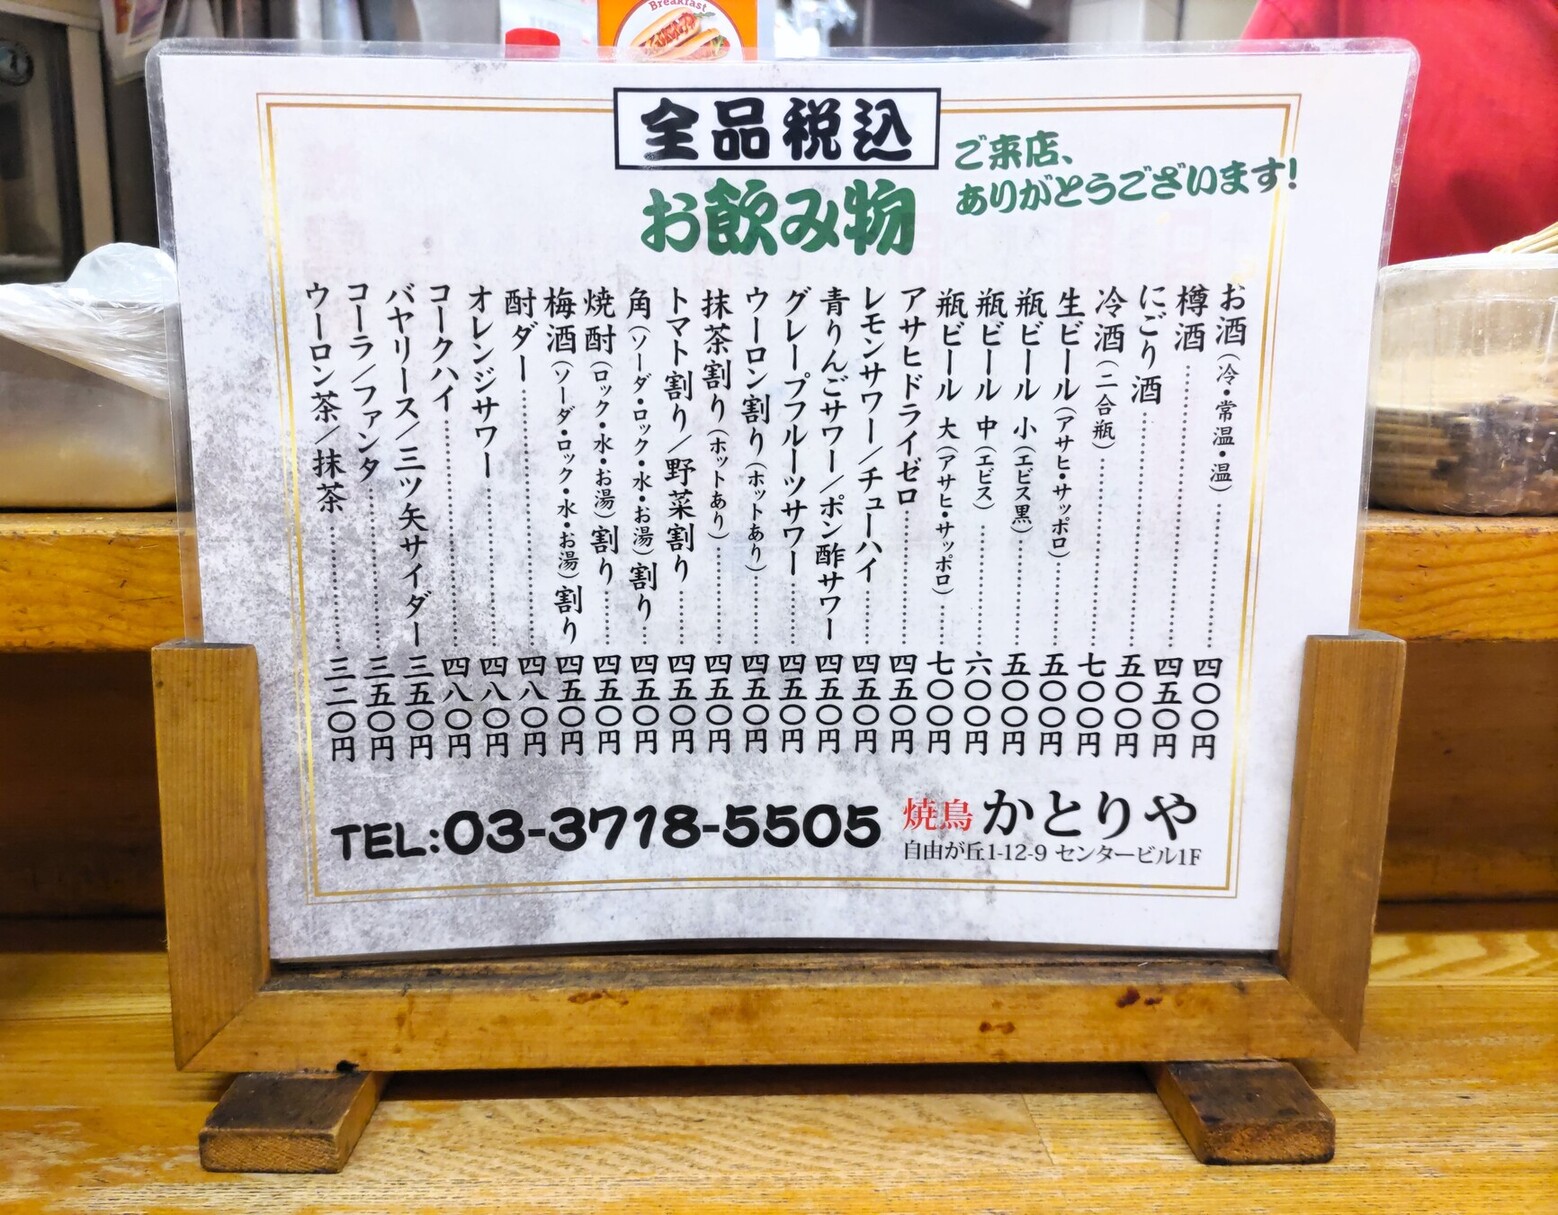 Breakfast
全品税込
お飲み物
ご来店、
ありがとうございます!
お酒(冷・常温・温)……四〇〇円
樽酒……四五〇円
にごり酒……五〇〇円
冷酒(二合瓶)……七〇〇円
生ビール(アサヒ・サッポロ)……五〇〇円
瓶ビール 小(エビス黒)……五〇〇円
瓶ビール 中(エビス)……六〇〇円
瓶ビール 大(アサヒ・サッポロ)……七〇〇円
アサヒドライゼロ……四五〇円
レモンサワー/チューハイ……四五〇円
青りんごサワー/ポン酢サワー 四五〇円
グレープフルーツサワー……四五〇円
ウーロン割り(ホットあり)……四五〇円
抹茶割り(ホットあり)……四五〇円
トマト割り/野菜割り……四五〇円
角(ソーダ・ロック・水・お湯)割り……四五〇円
焼酎(ロック・水・お湯)割り……四五〇円
梅酒(ソーダ・ロック・水・お湯)割り 四五〇円
酎ダー……四八〇円
オレンジサワー……四八〇円
コークハイ……四八〇円
バヤリース/三ツ矢サイダー 三五〇円
コーラ/ファンタ……三五〇円
ウーロン茶/抹茶……三二〇円
TEL:03-3718-5505
焼鳥 かとりや
自由が丘1-12-9 センタービル1F